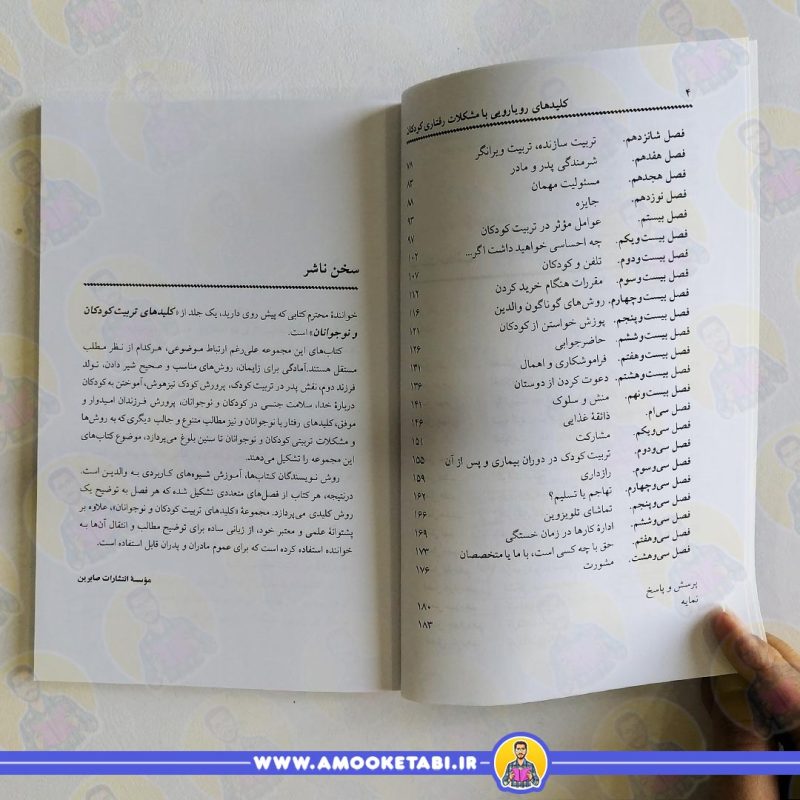 ۴
کلیدهای رویارویی با مشکلات رفتاری کودکان
فصل شانزدهم. تربیت سازنده، تربیت ویرانگر ۷۹
فصل هفدهم. شرمندگی پدر و مادر ۸۳
فصل هجدهم. مسئولیت مهمان ۸۸
فصل نوزدهم. جایزه ۹۳
فصل بیستم. عوامل مؤثر در تربیت کودکان ۹۷
فصل بیست‌ویکم. چه احساسی خواهید داشت اگر... ۱۰۲
فصل بیست‌ودوم. تلفن و کودکان ۱۰۷
فصل بیست‌وسوم. مقررات هنگام خرید کردن ۱۱۲
فصل بیست‌وچهارم. روش‌های گوناگون والدین ۱۱۶
فصل بیست‌وپنجم. پوزش خواستن از کودکان ۱۲۱
فصل بیست‌وششم. حاضرجوابی ۱۲۶
فصل بیست‌وهفتم. فراموشکاری و اهمال ۱۳۱
فصل بیست‌وهشتم. دعوت کردن از دوستان ۱۳۶
فصل بیست‌ونهم. منش و سلوک ۱۴۱
فصل سی‌ام. ذائقهٔ غذایی ۱۴۶
فصل سی‌ویکم. مشارکت ۱۵۱
فصل سی‌ودوم. تربیت کودک در دوران بیماری و پس از آن ۱۵۵
فصل سی‌وسوم. رازداری ۱۵۹
فصل سی‌وچهارم. تهاجم یا تسلیم؟ ۱۶۲
فصل سی‌وپنجم. تماشای تلویزیون ۱۶۶
فصل سی‌وششم. ادارهٔ کارها در زمان خستگی ۱۶۹
فصل سی‌وهفتم. حق با چه کسی است، با ما یا متخصصان ۱۷۳
فصل سی‌وهشت. مشورت ۱۷۶
پرسش و پاسخ ۱۸۰
نمایه ۱۸۳
سخن ناشر
خوانندهٔ محترم کتابی که پیش روی دارید، یک جلد از «کلیدهای تربیت کودکان
و نوجوانان» است.
کتاب‌های این مجموعه علی‌رغم ارتباط موضوعی، هرکدام از نظر مطلب
مستقل هستند. آمادگی برای زایمان، روش‌های مناسب و صحیح شیر دادن، تولد
فرزند دوم، نقش پدر در تربیت کودک، پرورش کودک تیزهوش، آموختن به کودکان
دربارهٔ خدا، سلامت جنسی در کودکان و نوجوانان، پرورش فرزندان امیدوار و
موفق، کلیدهای رفتار با نوجوانان و نیز مطالب متنوع و جالب دیگری که به روش‌ها
و مشکلات تربیتی کودکان و نوجوانان تا سنین بلوغ می‌پردازد، موضوع کتاب‌های
این مجموعه را تشکیل می‌دهند.
روش نویسندگان کتاب‌ها، آموزش شیوه‌های کاربردی به والدین است.
درنتیجه، هر کتاب از فصل‌های متعددی تشکیل شده که هر فصل به توضیح یک
روش کلیدی می‌پردازد. مجموعهٔ «کلیدهای تربیت کودکان و نوجوانان»، علاوه بر
پشتوانهٔ علمی و معتبر خود، از زبانی ساده برای توضیح مطالب و انتقال آن‌ها به
خواننده استفاده کرده است که برای عموم مادران و پدران قابل استفاده است.
مؤسسهٔ انتشارات صابرین
WWW.AMOOKETABI.IR